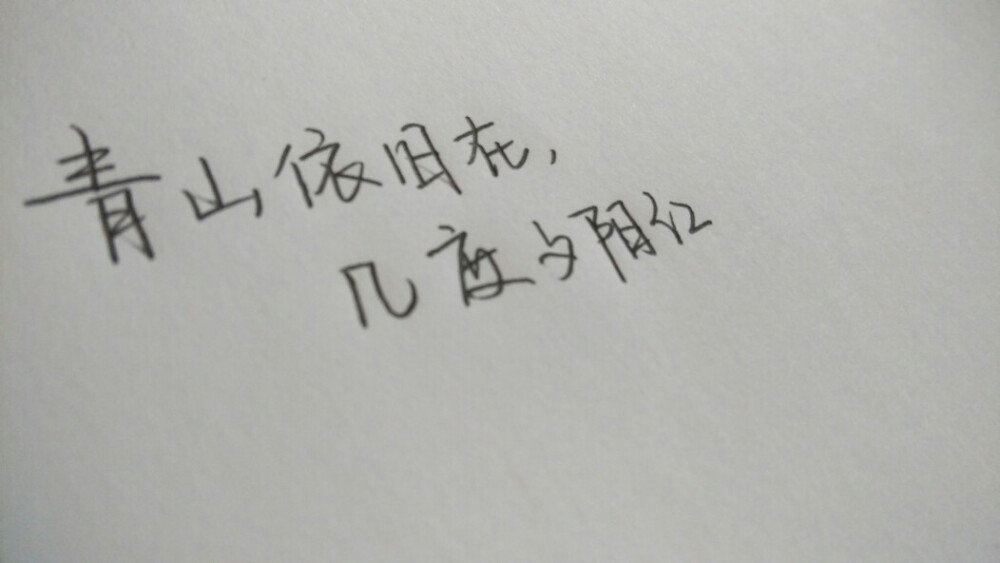 青山依旧在，
几度夕阳红